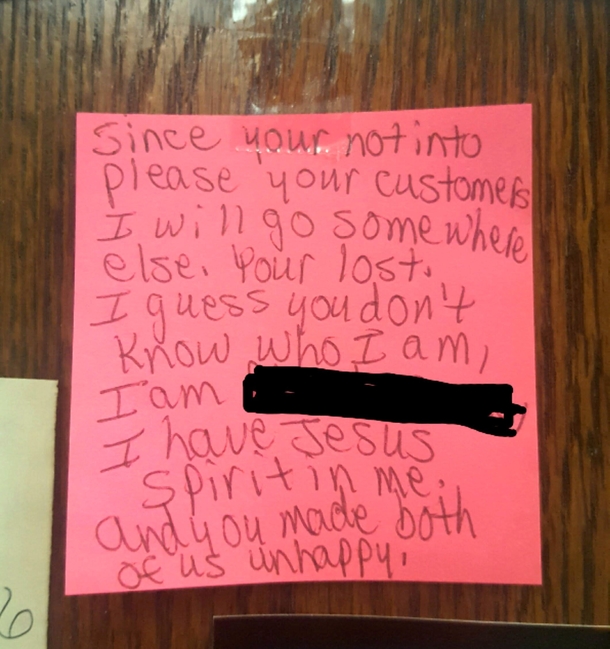 Since your not into
please your customers
I will go somewhere
else. Your lost.
I guess you don't
know who I am,
I am
I have Jesus
spirit in me.
and you made both
of us unhappy.
6